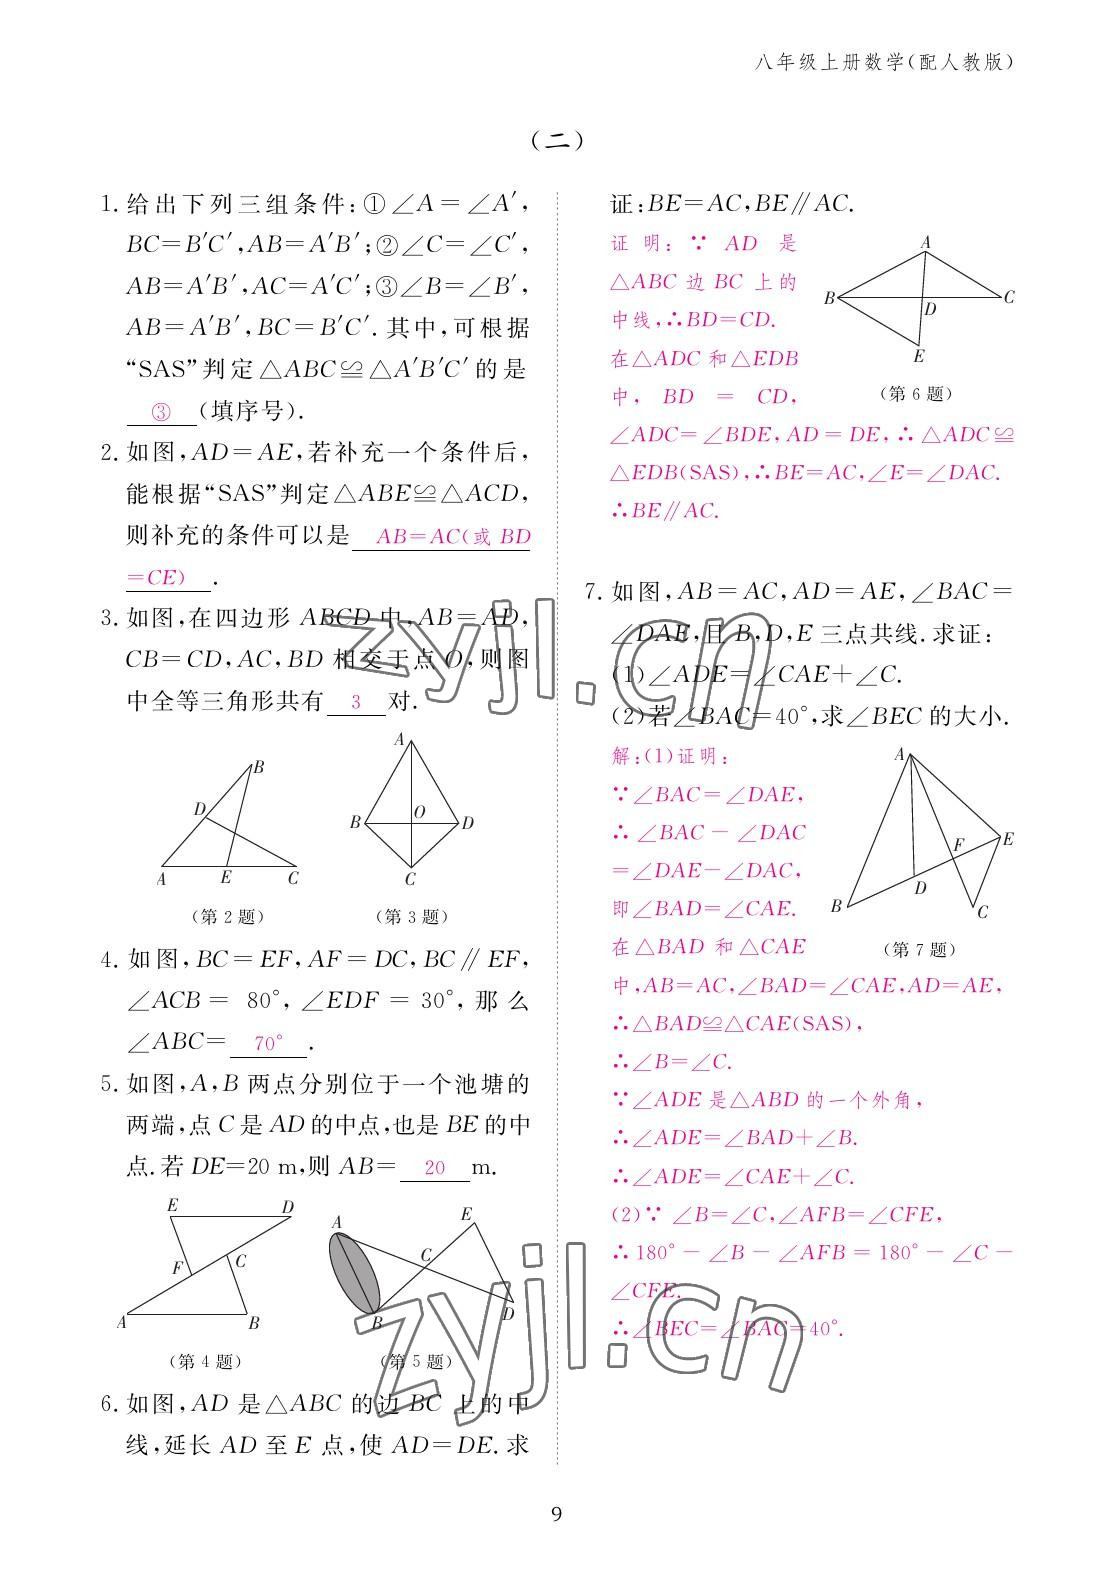 八年级上册数学(配人教版)
(二)
1. 给出下列三组条件:①∠A=∠A′,
BC=B′C′,AB=A′B′;②∠C=∠C′,
AB=A′B′,AC=A′C′;③∠B=∠B′,
AB=A′B′,BC=B′C′. 其中,可根据
“SAS”判定△ABC≌△A′B′C′的是
③ (填序号).
2. 如图,AD=AE,若补充一个条件后,
能根据“SAS”判定△ABE≌△ACD,
则补充的条件可以是 AB=AC(或 BD
=CE) .
3. 如图,在四边形 ABCD 中,AB=AD,
CB=CD,AC,BD 相交于点 O,则图
中全等三角形共有 3 对.
B
D
A E C
(第 2 题)
A
B O D
C
(第 3 题)
4. 如图,BC=EF,AF=DC,BC∥EF,
∠ACB=80°,∠EDF=30°,那么
∠ABC= 70° .
5. 如图,A,B 两点分别位于一个池塘的
两端,点 C 是 AD 的中点,也是 BE 的中
点. 若 DE=20 m,则 AB= 20 m.
E D
F C
A B
(第 4 题)
A E
C
B D
(第 5 题)
6. 如图,AD 是△ABC 的边 BC 上的中
线,延长 AD 至 E 点,使 AD=DE. 求
证:BE=AC,BE∥AC.
证明:∵AD 是
△ABC 边 BC 上的
中线,∴BD=CD.
在△ADC 和△EDB
中,BD=CD,
∠ADC=∠BDE,AD=DE,∴△ADC≌
△EDB(SAS),∴BE=AC,∠E=∠DAC.
∴BE∥AC.
A
B D C
E
(第 6 题)
7. 如图,AB=AC,AD=AE,∠BAC=
∠DAE,且 B,D,E 三点共线. 求证:
(1)∠ADE=∠CAE+∠C.
(2)若∠BAC=40°,求∠BEC 的大小.
解:(1)证明:
∵∠BAC=∠DAE,
∴∠BAC-∠DAC
=∠DAE-∠DAC,
即∠BAD=∠CAE.
在△BAD 和△CAE
中,AB=AC,∠BAD=∠CAE,AD=AE,
∴△BAD≌△CAE(SAS),
∴∠B=∠C.
∵∠ADE 是△ABD 的一个外角,
∴∠ADE=∠BAD+∠B.
∴∠ADE=∠CAE+∠C.
(2)∵∠B=∠C,∠AFB=∠CFE,
∴180°-∠B-∠AFB=180°-∠C-
∠CFE.
∴∠BEC=∠BAC=40°.
A
F E
D
B C
(第 7 题)
zyjl.cn
zyjl.cn
9